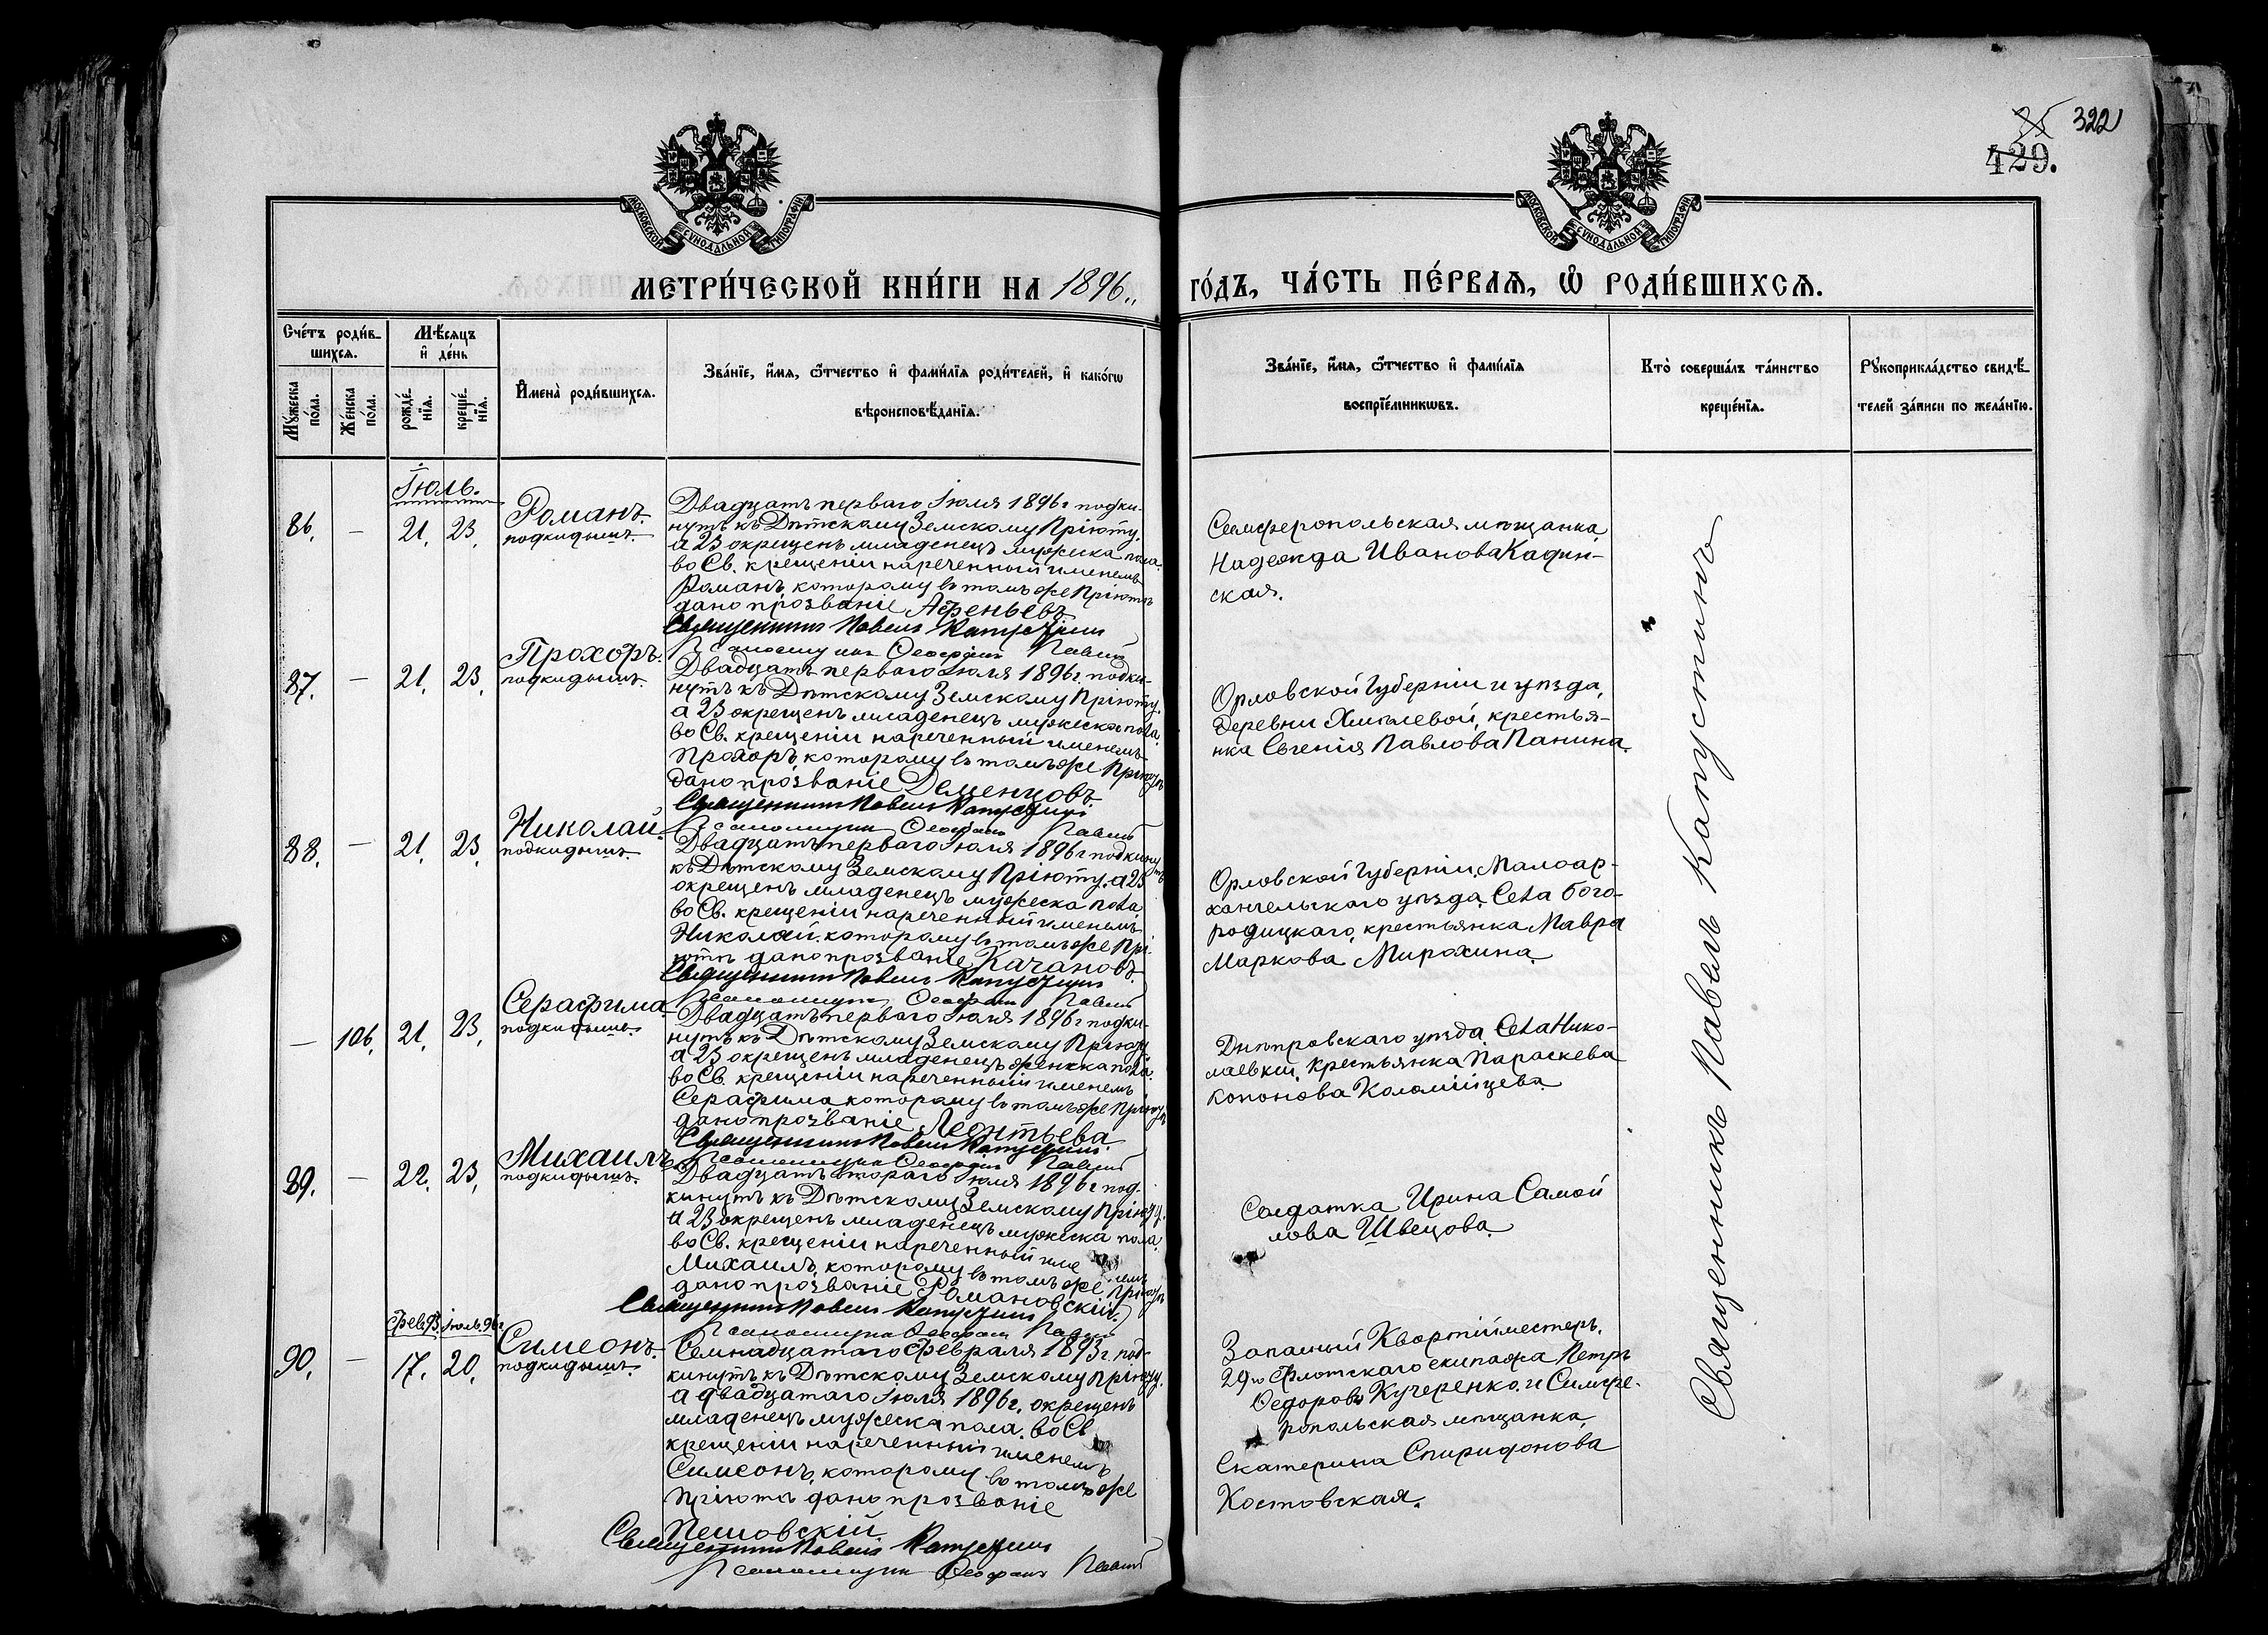 322
429.
МОСКОВСКОЙ СѴНОДАЛЬНОЙ ТИПОГРАФІИ
МОСКОВСКОЙ СѴНОДАЛЬНОЙ ТИПОГРАФІИ
МЕТРИ́ЧЕСКОЙ КНИ́ГИ НА 1896 г.
ГО́ДЪ, ЧА́СТЬ ПЕ́РВАѦ, Ѽ РОДИ́ВШИХСѦ.
Сче́тъ роди́в-
шихсѧ.
Мꙋ́жеска по́ла.
Же́нска по́ла.
Мѣ́сяцъ
и҆ де́нь
рожде́-
нїѧ.
креще́-
нїѧ.
И҆мена̀ роди́вшихсѧ.
Зва́нїе, и҆́мѧ, ѻ҆́тчество и҆ фами́лїѧ роди́телей, и҆ како́гѡ
вѣроисповѣ́данїѧ.
Зва́нїе, и҆́мѧ, ѻ҆́тчество и҆ фами́лїѧ
воспрїе́мникѡвъ.
Кто̀ соверша́лъ та́инство
креще́нїѧ.
Рꙋкоприкла́дство свидѣ́-
телей за́писи по жела́нїю.
Іюль.
86. — 21. 23. Романъ.
подкидышъ.
Двадцать перваго Іюля 1896 г подки-
нутъ къ Дѣтскому Земскому Пріюту,
а 23 окрещенъ младенецъ мужеска пола.
во Св. крещеніи нареченный именемъ
Романъ, которому въ томъ же Пріютѣ
дано прозваніе Афеньевъ.
Священникъ Павелъ Капустинъ
Псаломщикъ Ѳеофанъ
Симферопольская мѣщанка
Надежда Иванова Кадин-
ская.
87. — 21. 23. Прохоръ.
подкидышъ.
Двадцать перваго Іюля 1896 г. подки-
нутъ къ Дѣтскому Земскому Пріюту.
а 23 окрещенъ младенецъ мужеска пола.
во Св. крещеніи нареченный именемъ
Прохоръ, которому въ томъ же Пріютѣ
дано прозваніе Деменцовъ
Священникъ Павелъ Капустинъ
Псаломщикъ Ѳеофанъ
Орловской Губерніи и уѣзда,
деревни Хмѣлевой, крестья-
нка Евгенія Павлова Панина.
88. — 21. 23. Николай.
подкидышъ.
Двадцать перваго Іюля 1896 г подкинутъ
къ Дѣтскому Земскому Пріюту. а 23
окрещенъ младенецъ мужеска пола
во Св. крещеніи нареченный именемъ
Николай. которому въ томъ же Прі-
ютѣ дано прозваніе Качановъ.
Священникъ Павелъ Капустинъ
Псаломщикъ Ѳеофанъ
Орловской Губерніи, Малоар-
хангельскаго уѣзда, Села Бого-
родицкаго, крестьянка Мавра
Маркова Мирохина.
— 106. 21. 23. Серафима.
подкидышъ.
Двадцать перваго Іюля 1896 г подки-
нутъ къ Дѣтскому Земскому Пріюту
а 23 окрещенъ младенецъ женска пола.
во Св. крещеніи нареченный именемъ
Серафима которому въ томъ же Пріютѣ
дано прозваніе Леонтьева.
Священникъ Павелъ Капустинъ.
Псаломщикъ Ѳеофанъ
Днѣпровскаго уѣзда, Села Нико-
лаевки, крестьянка Параскева
Кононова Коломійцева.
89. — 22. 23. Михаилъ.
подкидышъ.
Двадцать втораго Іюля 1896 г под-
кинутъ къ Дѣтскому Земскому Пріюту.
а 23 окрещенъ младенецъ мужеска пола.
во Св. крещеніи нареченный име немъ
Михаилъ, которому въ томъ же Пріютѣ
дано прозваніе Романовскій.
Священникъ Павелъ Капустинъ
Псаломщикъ Ѳеофанъ
Солдатка Ирина Самой
лова Швецова.
Фев. 93. Іюль. 96 г.
90. — 17. 20. Симеонъ.
подкидышъ.
Семнадцатаго Февраля 1893 г. под-
кинутъ къ Дѣтскому Земскому Пріюту.
а двадцатаго Іюля 1896 г. окрещенъ
младенецъ мужеска пола. во Св
крещеніи нареченный именемъ
Симеонъ, которому въ томъ же
Пріютѣ дано прозваніе
Пешовскій.
Священникъ Павелъ Капустинъ
Псаломщикъ Ѳеофанъ
Запасный Квартіймейстеръ,
29 го Флотскаго екипажа Петръ
Ѳедоровъ Кучеренко. и Симфе-
ропольская мѣщанка
Екатерина Спиридонова
Костовская.
Священникъ Павелъ Капустинъ